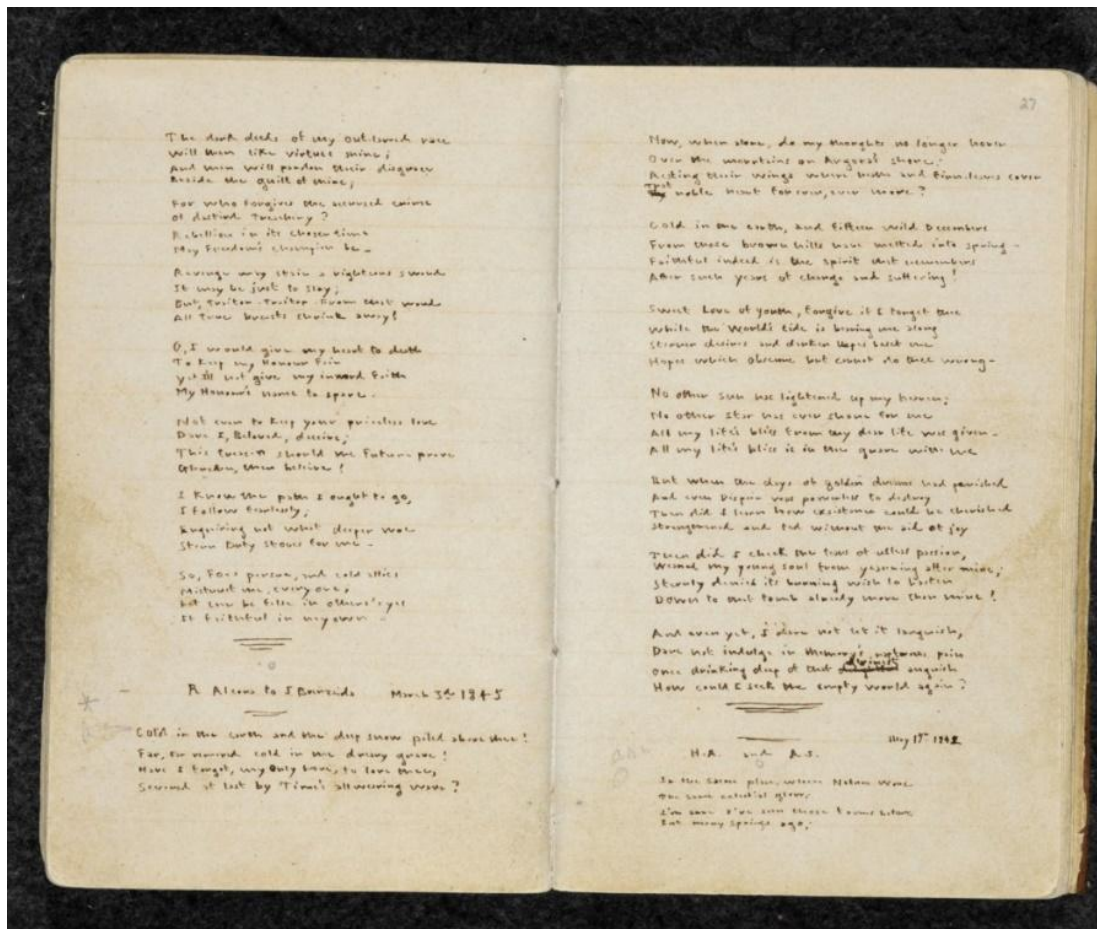 The dark deeds of my outlawed race
Will then like virtues shine;
And men will pardon their disgrace
Beside the guilt of mine;
For who forgives the accursed crime
Of dastard treachery?
Rebellion in its chosen time
May Freedom's champion be -
Revenge may stain a righteous sword
It may be just to slay;
But, Traitor - Traitor - from that word
All true breasts shrink away!
O, I would give my heart to death
To keep my Honour fair
yet I'll not give my inward Faith
My Honour's name to spare -
Not even to keep your priceless love
Dare I, Beloved, deceive;
This treason should the Future prove
then believe!
I know the path I ought to go,
I follow fearlessly,
Enquiring not what deeper woe
Stern Duty stores for me -
So, Foes pursue, and cold allies
Mistrust me, every one;
Let me be false in others' eyes
If faithful in my own -
R Alcona to J Brenzaida March 3rd 1845
Cold in the earth and the deep snow piled above thee!
Far, far removed cold in the dreary grave!
Have I forgot, my Only Love, to love thee,
Severed at last by Time's allwearing wave?
27
Now, when alone, do my thoughts no longer hover
Over the mountains on Angora's shore;
Resting their wings where heath and fern-leaves cover
That noble heart for ever, ever more?
Cold in the earth, and fifteen wild Decembers
From those brown hills have melted into spring -
Faithful indeed is the spirit that remembers
After such years of change and suffering!
Sweet Love of youth, forgive if I forget thee
While the World's tide is bearing me along
Sterner desires and darker hopes beset me
Hopes which obscure but cannot do thee wrong -
No other Sun has lightened up my heaven;
No other Star has ever shone for me
All my life's bliss from thy dear life was given -
All my life's bliss is in the grave with thee
But when the days of golden dreams had perished
And even Despair was powerless to destroy
Then did I learn how existence could be cherished
Strengthened and fed without the aid of joy
Then did I check the tears of useless passion,
Weaned my young soul from yearning after thine;
Sternly denied its burning wish to hasten
Down to that tomb already more than mine!
And even yet, I dare not let it languish,
Dare not indulge in Memory's rapturous pain
Once drinking deep of that divinest anguish
How could I seek the empty world again?
May 17th 1842
H.A. and A.S.
In the same place, when Nature wore
The same celestial glow;
I'm sure I've seen those forms before
But many springs ago;